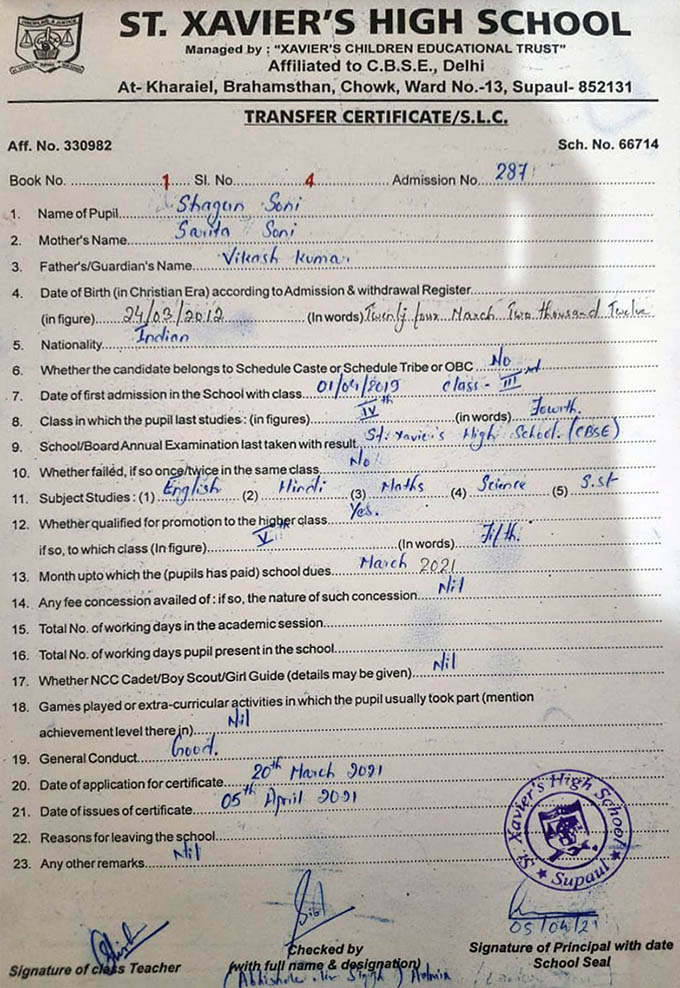 ST. XAVIER'S HIGH SCHOOL
Managed by : "XAVIER'S CHILDREN EDUCATIONAL TRUST"
Affiliated to C.B.S.E., Delhi
At- Kharaiel, Brahamsthan, Chowk, Ward No.-13, Supaul- 852131
TRANSFER CERTIFICATE/S.L.C.
Aff. No. 330982 Sch. No. 66714
Book No. 1 Sl. No. 4 Admission No. 287
1. Name of Pupil Shagun Soni
2. Mother's Name Sarita Soni
3. Father's/Guardian's Name Vikash Kumar
4. Date of Birth (in Christian Era) according to Admission & withdrawal Register
(in figure) 24/03/2012 (In words) Twenty four March Two thousand Twelve
5. Nationality Indian
6. Whether the candidate belongs to Schedule Caste or Schedule Tribe or OBC No
7. Date of first admission in the School with class 01/04/2019 Class - IIIrd
8. Class in which the pupil last studies : (in figures) IVth (in words) Fourth.
9. School/Board Annual Examination last taken with result St. Xavier's High School. (CBSE)
10. Whether failed, if so once/twice in the same class No
11. Subject Studies : (1) English (2) Hindi (3) Maths (4) Science (5) S.st
12. Whether qualified for promotion to the higher class Yes.
if so, to which class (In figure) Vth (In words) Fifth.
13. Month upto which the (pupils has paid) school dues March 2021
14. Any fee concession availed of : if so, the nature of such concession Nil
15. Total No. of working days in the academic session
16. Total No. of working days pupil present in the school
17. Whether NCC Cadet/Boy Scout/Girl Guide (details may be given) Nil
18. Games played or extra-curricular activities in which the pupil usually took part (mention
achievement level there in) Nil
19. General Conduct Good.
20. Date of application for certificate 20th March 2021
21. Date of issues of certificate 05th April 2021
22. Reasons for leaving the school
23. Any other remarks Nil
St. Xavier's High School
Supaul
05/04/21
Signature of class Teacher
Checked by
(with full name & designation)
Signature of Principal with date
School Seal